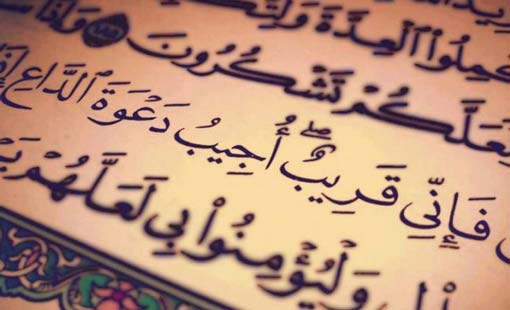 ـكْمِلُوا۟ ٱلْعِدَّةَ وَلِتُكَـ
ـعَلَّكُمْ تَشْكُرُونَ ١٨٥ وَإِذَا سَـ
فَإِنِّي قَرِيبٌ ۖ أُجِيبُ دَعْوَةَ ٱلدَّاعِ إِذَ
وَلْيُؤْمِنُوا۟ بِي لَعَلَّهُمْ يَـ